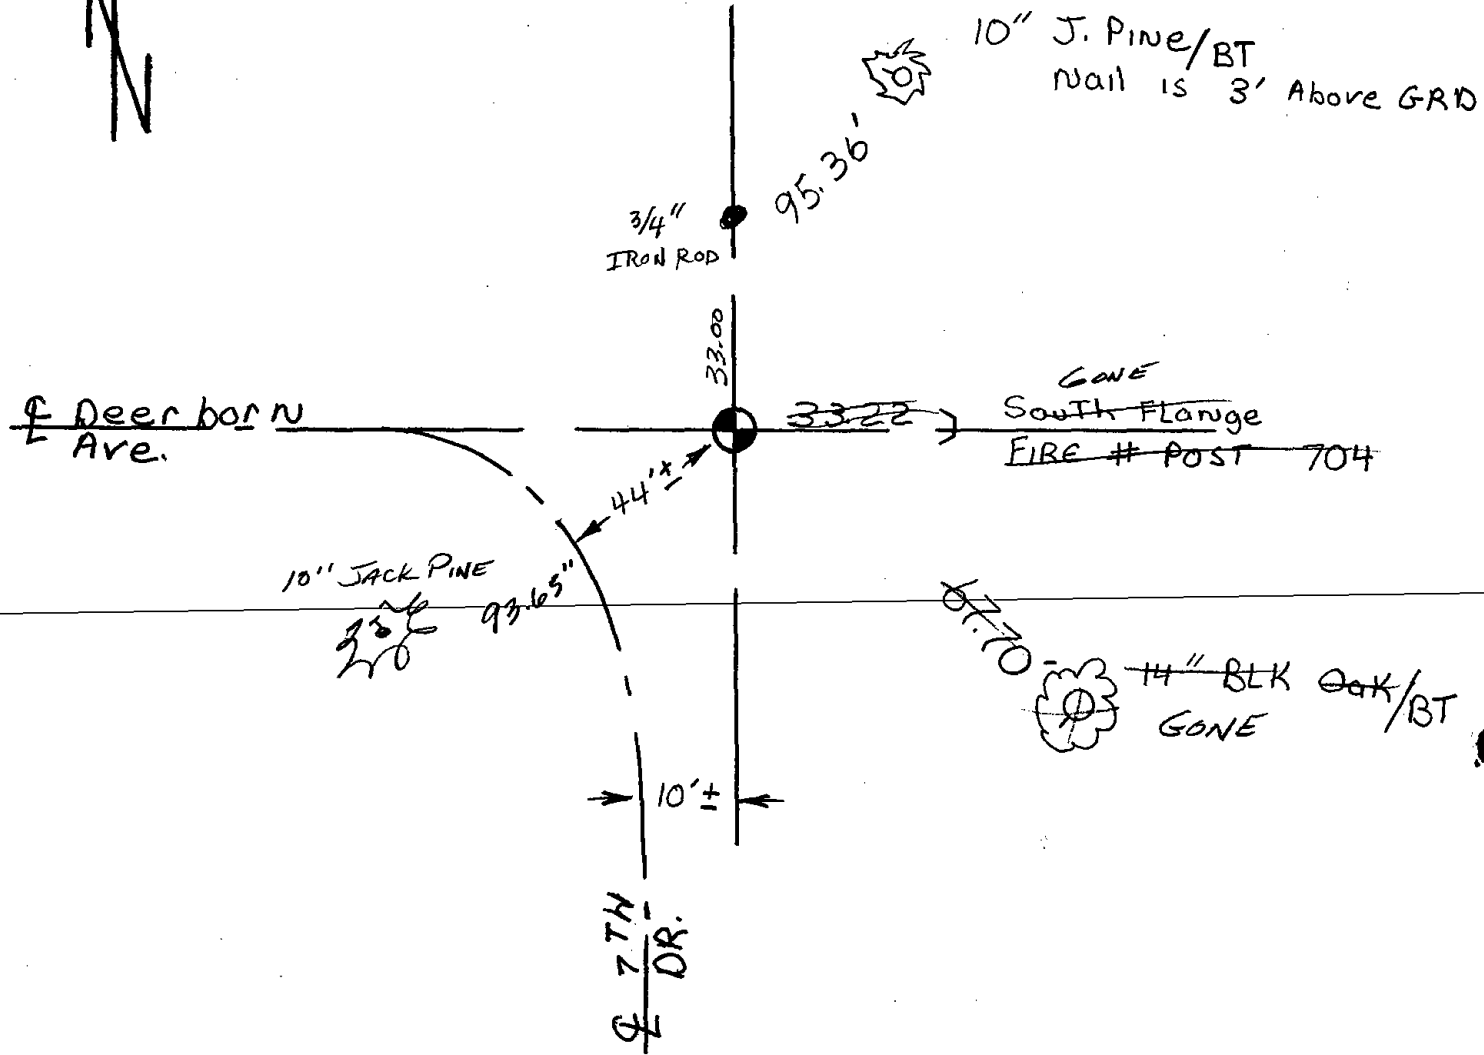 N
10" J. Pine/BT
Nail is 3' Above GRD
95.36'
3/4"
IRON ROD
33.00
℄ Deerborn
Ave.
33.22
GONE
South Flange
FIRE # POST 704
44'±
10" JACK PINE
93.65"
67.70
14" BLK Oak/BT
GONE
10'±
℄ 7TH
DR.